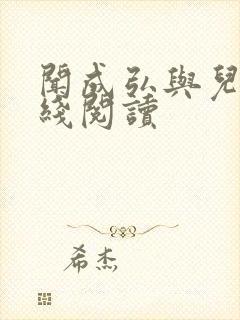 聞成弘與兒
綫閱讀
希杰